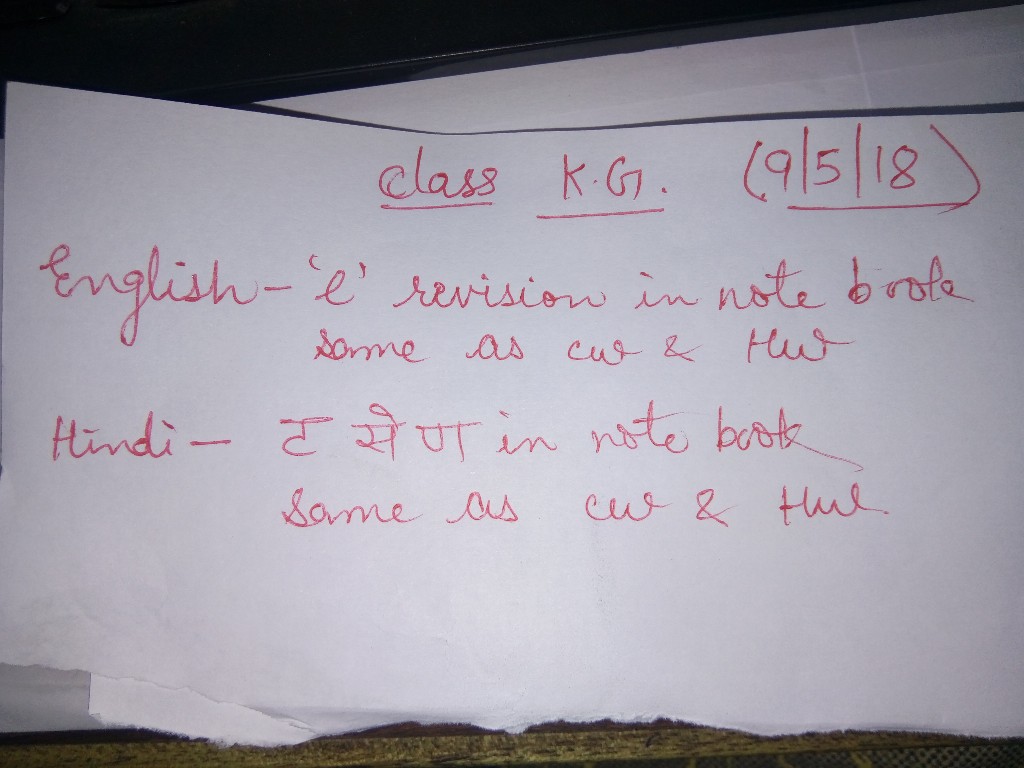 class K.G. (9/5/18)
English - 'e' revision in note book
same as cw & Hw
Hindi - ट से ण in note book
same as cw & Hw.